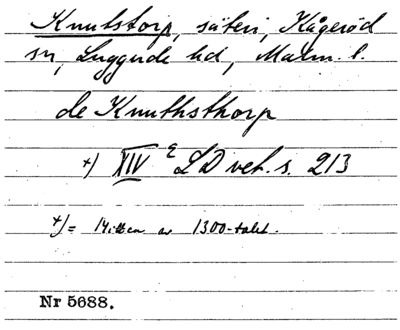 Knutstorp, säteri, Kågeröd
sn, Luggude hd, Malm. l.
de Knuthsthorp
+) XIV 2 LD vet. s. 213
+) = Mitten av 1300-talet.
Nr 5688.